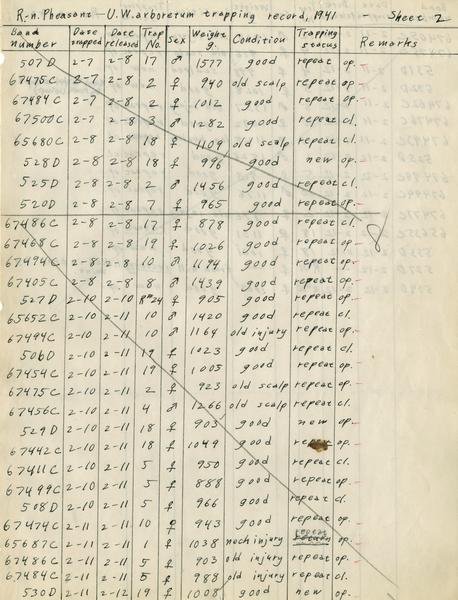 R.n. Pheasant - U.W. arboretum trapping record, 1941 - Sheet 2
Band number Date trapped Date released Trap No. Sex Weight g. Condition Trapping status Remarks
507D 2-7 2-8 17 ♂ 1577 good repeat op.
67475C 2-7 2-8 2 ♀ 940 old scalp repeat op.
67484C 2-7 2-8 2 ♀ 1012 good repeat op.
67500C 2-7 2-8 3 ♂ 1282 good repeat cl.
65680C 2-8 2-8 18 ♂ 1109 old scalp repeat cl.
528D 2-8 2-8 18 ♀ 996 good new op.
525D 2-8 2-8 2 ♂ 1456 good repeat cl.
520D 2-8 2-8 7 ♀ 965 good repeat op.
67486C 2-8 2-8 17 ♀ 878 good repeat cl.
8
67468C 2-8 2-8 19 ♀ 1026 good repeat op.
67494C 2-8 2-8 10 ♂ 1194 good repeat op.
67405C 2-8 2-8 8 ♂ 1439 good repeat op.
527D 2-10 2-10 24 ♀ 905 good repeat op.
65652C 2-10 2-10 10 ♂ 1420 good repeat cl.
67494C 2-10 2-10 10 ♂ 1164 old injury repeat op.
506D 2-10 2-11 19 ♀ 1023 good repeat cl.
67454C 2-10 2-11 19 ♀ 1005 good repeat op.
67475C 2-10 2-11 2 ♀ 923 old scalp repeat op.
67456C 2-10 2-11 4 ♂ 1266 old scalp repeat cl.
529D 2-10 2-11 18 ♀ 903 good new op.
67442C 2-10 2-11 18 ♀ 1049 good repeat op.
67411C 2-10 2-11 5 ♀ 950 good repeat cl.
67499C 2-10 2-11 5 ♀ 888 good repeat op.
508D 2-10 2-11 5 ♀ 966 good repeat cl.
67474C 2-11 2-11 10 ♀ 943 good repeat op.
65687C 2-11 2-11 1 ♀ 1038 neck injury repeat return op.
67486C 2-11 2-11 5 ♀ 903 old injury repeat op.
67484C 2-11 2-11 5 ♀ 988 old injury repeat cl.
530D 2-11 2-12 19 ♀ 1008 good new op.